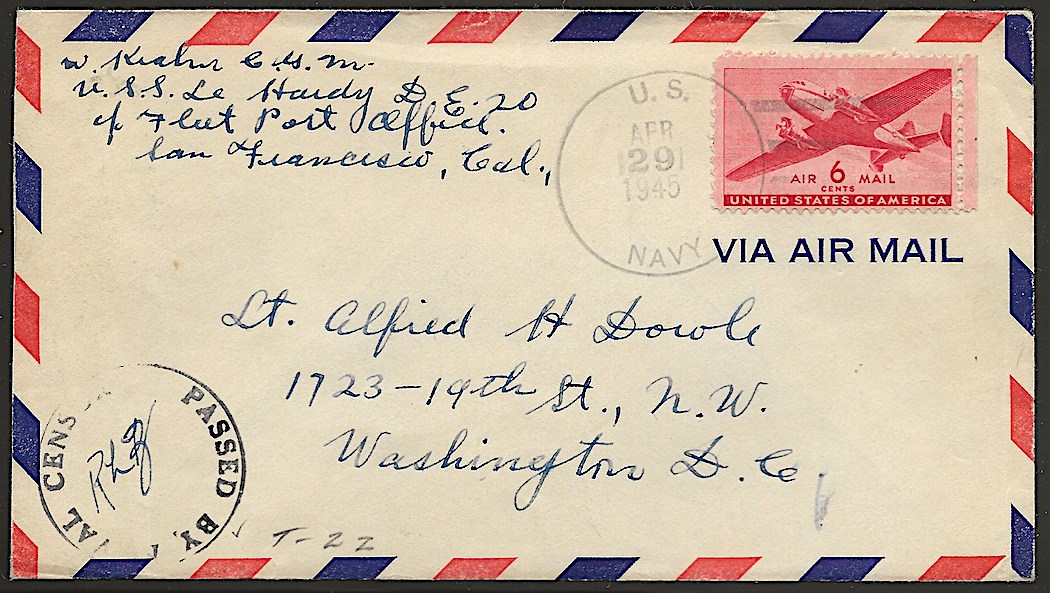 W. Krahn C.G.M.
U.S.S. Le Hardy D.E. 20
c/o Fleet Post Office.
San Francisco, Cal.,
U.S.
APR
29
1945
NAVY
AIR 6 MAIL
CENTS
UNITED STATES OF AMERICA
VIA AIR MAIL
Lt. Alfred H Dowle
1723-19th St., N.W.
Washington D.C.
PASSED BY
CENS
T-22